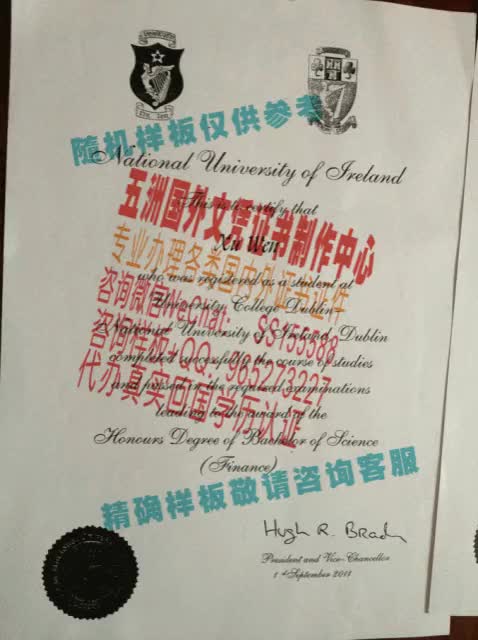 随机样板仅供参考
National University of Ireland
This is to certify that
五洲国外文凭证书制作中心
Xu Wen
who was registered as a student at
University College Dublin
National University of Ireland, Dublin
completed successfully the course of studies
and passed in the required examinations
代办真实回国学历认证
leading to the award of the
Honours Degree of Bachelor of Science
(Finance)
精确样板敬请咨询客服
Hugh R. Brady
President and Vice-Chancellor
1st September 2011